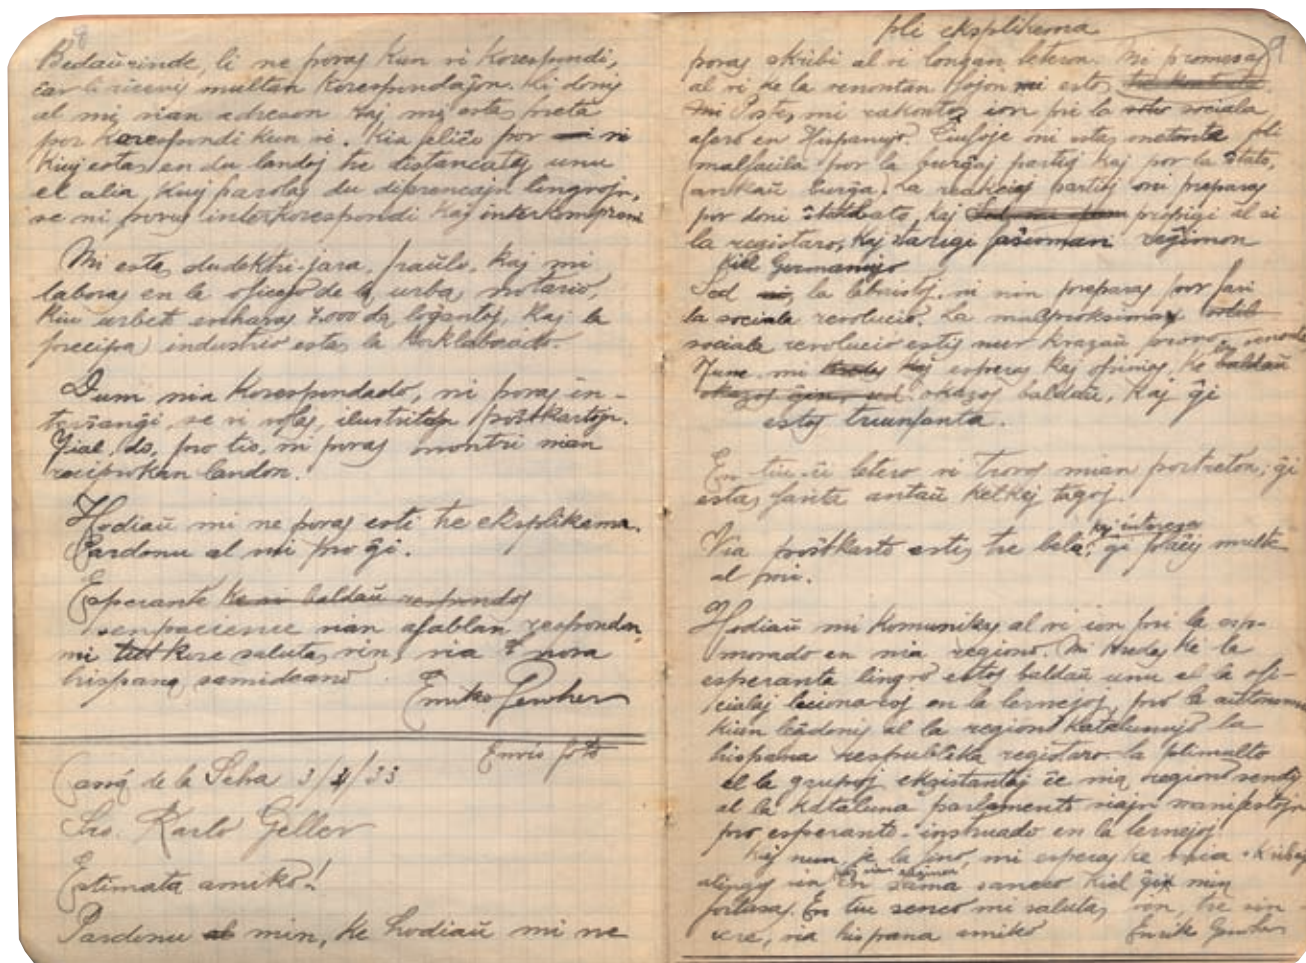 8
Bedaŭrinde, li ne povas kun vi korespondi,
ĉar li ricevis multan korespondaĵon. Li donis
al mi vian adreson kaj mi estas preta
por korespondi kun vi. Kia feliĉo por vi
kiuj estas en du landoj tre distancataj unu
el alia, kiuj parolas du diferencajn lingvojn,
se ni povus interkorespondi kaj interkompreni
Mi estas dudektri-jara, fraŭlo, kaj mi
laboras en la oficejo de la urba notario,
kiu urbet enhavas 7.000 da loĝantoj, kaj la
precipa industrio estas la korklaborado.
Dum nia korespondado, ni povas in-
terŝanĝi, se vi volas, ilustritajn poŝtkartojn.
Tial, do, pro tio, ni povas montri nian
reciprokan landon.
Hodiaŭ mi ne povas esti tre eksplikema.
Pardonu al mi pro ĝi.
Esperante ke ni baldaŭ respondos
senpacience vian afablan respondon,
mi kore salutas vin, via nova
hispana samideano
Enriko
Envis foto
Cassá de la Selva 3/4/33
Sro. Karlo Geller
Estimata amiko!
Pardonu al min, ke hodiaŭ mi ne
pli eksplikema
9
povas skribi al vi longan leteron. Mi promesas
al vi ke la venontan fojon mi estos
mi Poste, mi rakontos ion pri la sociala
afero en Hispanujo. Ĉiufoje ni estas pli
malfacila por la burĝaj partioj kaj por la ŝtato,
ankaŭ burĝa. La reakciaj partioj sin preparas
por doni ŝtatbato, kaj al si
la registaro, kaj reĝimon
kiel Germanujo
Sed la laboristoj, ni nin preparas por fari
la sociala revolucio. La malproksima
sociala revolucio estis nur
mi kaj esperas kaj opinias, ke baldaŭ
okazos ĝin, sed okazos baldaŭ, kaj ĝi
estos triunfanta.
En tiu-ĉi letero vi trovos mian portreton; ĝi
estas antaŭ kelkaj tagoj.
kaj interesa
Via poŝtkarto estis tre bela; ĝi plaĉis multe
al mi.
Hodiaŭ mi komunikas al vi ion pri la esp-
movado en nia regiono. Mi kredas ke la
esperanta lingvo estos baldaŭ unu el la ofi-
cialaj lecionatoj en la lernejoj, pro la aŭtonomio
kiun al la regiono Katalunujo la
hispana respublika registaro. la plimulto
el la grupoj ekzistantaj ĉe nia regiono sendis
al la kataluna parlamento siajn manifestojn
pro esperanto-instruado en la lernejoj
Kaj nun, je la fino, mi esperas ke mia skribaĵ
atingos vin en sama saneco kiel min
En tiu senco mi salutas vin, tre sin-
cere, via hispana amiko Enriko